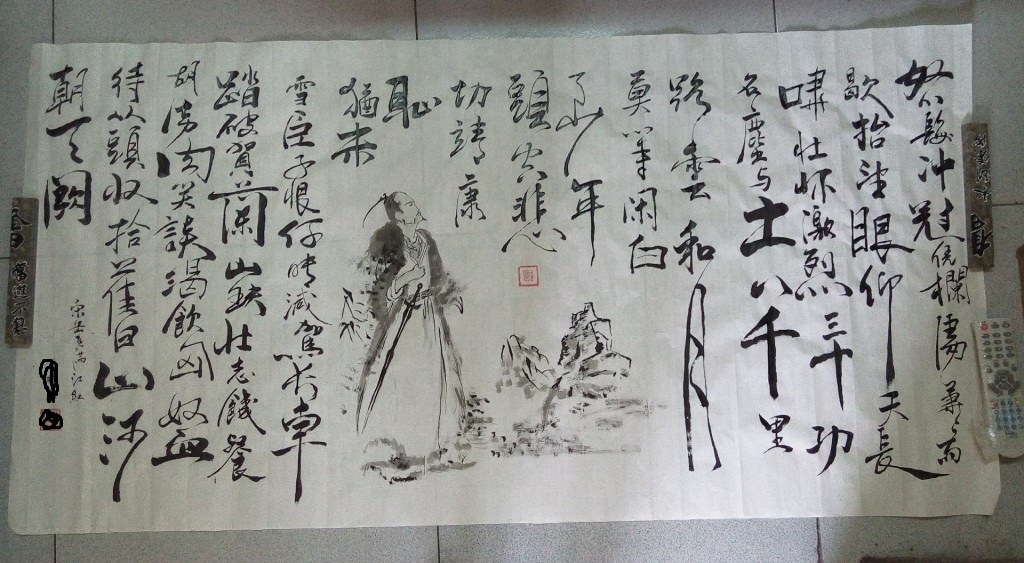 怒髮冲冠凭欄雨
歇抬望眼仰天長
嘯壮怀激烈三十功
名塵与土八千里
路雲和月
莫等闲白
了少年
頭空悲
切靖康
耻
猶未
雪臣子恨何時滅駕長車
踏破賀蘭山缺壮志饑餐
胡虜肉笑談渴飲匈奴血
待从頭收拾舊日山河
朝天闕
宋岳飛满江红